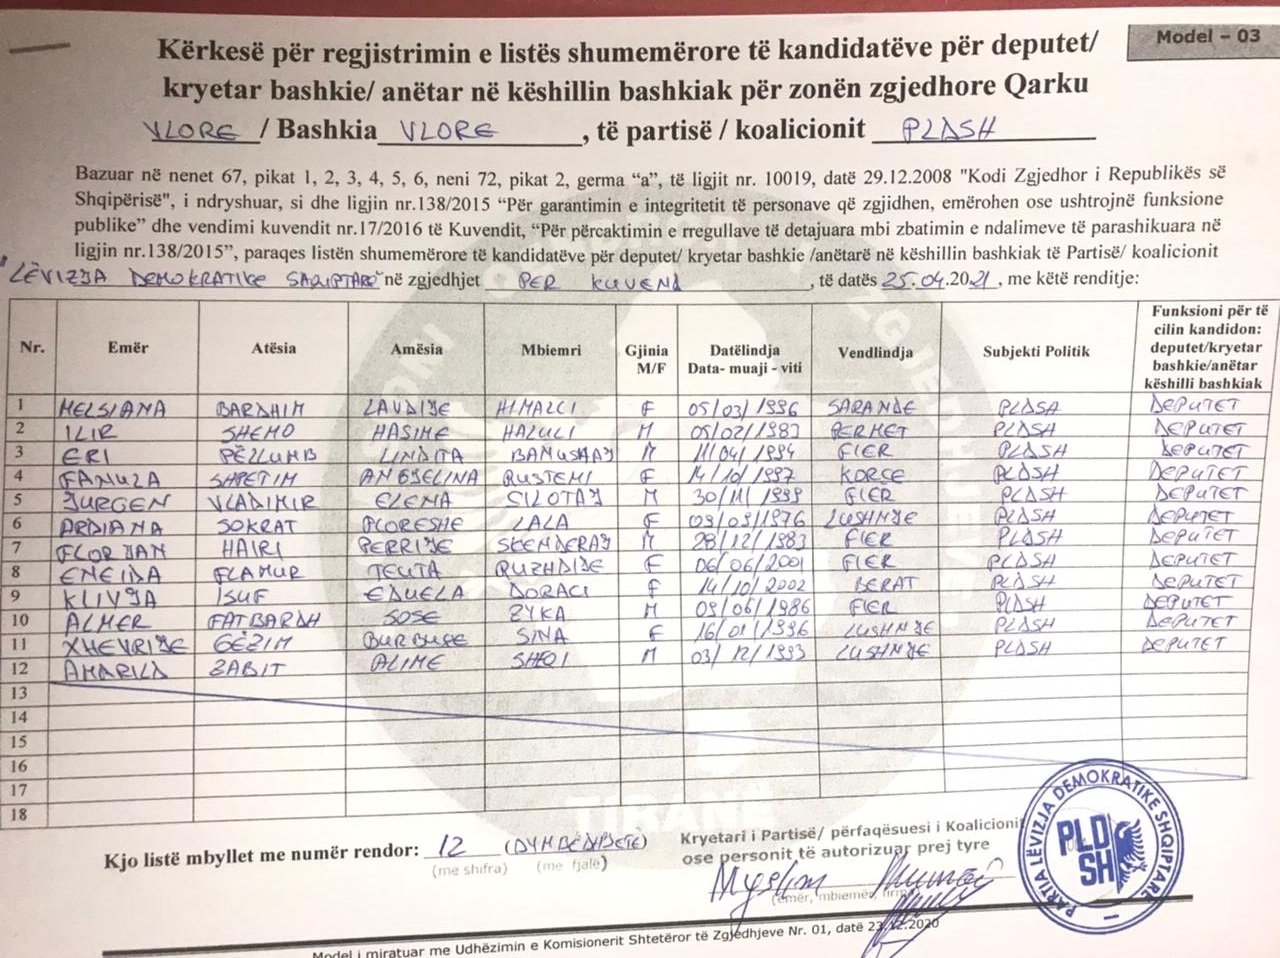 Model – 03
Kërkesë për regjistrimin e listës shumemërore të kandidatëve për deputet/
kryetar bashkie/ anëtar në këshillin bashkiak për zonën zgjedhore Qarku
VLORE / Bashkia VLORE , të partisë / koalicionit PLDSH
Bazuar në nenet 67, pikat 1, 2, 3, 4, 5, 6, neni 72, pikat 2, germa “a”, të ligjit nr. 10019, datë 29.12.2008 "Kodi Zgjedhor i Republikës së
Shqipërisë", i ndryshuar, si dhe ligjin nr.138/2015 “Për garantimin e integritetit të personave që zgjidhen, emërohen ose ushtrojnë funksione
publike” dhe vendimi kuvendit nr.17/2016 të Kuvendit, “Për përcaktimin e rregullave të detajuara mbi zbatimin e ndalimeve të parashikuara në
ligjin nr.138/2015”, paraqes listën shumemërore të kandidatëve për deputet/ kryetar bashkie /anëtarë në këshillin bashkiak të Partisë/ koalicionit
"LËVIZJA DEMOKRATIKE SHQIPTARE" në zgjedhjet PER KUVEND , të datës 25.04.2021, me këtë renditje:
Nr. Emër Atësia Amësia Mbiemri Gjinia M/F Datëlindja Data- muaji - viti Vendlindja Subjekti Politik Funksioni për të cilin kandidon: deputet/kryetar bashkie/anëtar këshilli bashkiak
1 MELSIANA BARDHIM LAVDIJE HIMALCI F 05/03/1996 SARANDE PLDSH DEPUTET
2 ILIR SHEMO HASIME HALULI M 05/02/1983 PERMET PLDSH DEPUTET
3 ERI PËLLUMB LINDITA BANUSHAJ M 11/04/1994 FIER PLDSH DEPUTET
4 FAMULLA SHPETIM ANGJELINA RUSTEMI F 14/10/1997 KORCE PLDSH DEPUTET
5 JURGEN VLADIMIR ELENA SILOTAJ M 30/11/1999 FIER PLDSH DEPUTET
6 ARDIANA SOKRAT FLORESHE LALA F 09/09/1976 LUSHNJE PLDSH DEPUTET
7 FLORJAN HAIRI PERRIJE SKENDERAJ M 28/12/1983 FIER PLDSH DEPUTET
8 ENEIDA FLAMUR TEUTA RUZHDIJE F 06/06/2001 FIER PLDSH DEPUTET
9 KLIVJA ISUF EDUELA DORACI F 14/10/2002 BERAT PLDSH DEPUTET
10 ALMER FATBARDH SOSE ZYKA M 09/06/1986 FIER PLDSH DEPUTET
11 XHEVRIJE GËZIM BURBUQE SINA F 16/01/1996 LUSHNJE PLDSH DEPUTET
12 AMARILD ZABIT ALIME SHEQI M 03/12/1993 LUSHNJE PLDSH DEPUTET
13
14
15
16
17
18
Kjo listë mbyllet me numër rendor: 12 (DYMBËDHJETË)
(me shifra) (me fjalë)
Kryetari i Partisë/ përfaqësuesi i Koalicionit
ose personit të autorizuar prej tyre
Myslim
(emër, mbiemër,
PARTIA LËVIZJA DEMOKRATIKE SHQIPTARE
PLD
SH
TIRANË
Model i miratuar me Udhëzimin e Komisionerit Shtetëror të Zgjedhjeve Nr. 01, datë 23.12.2020